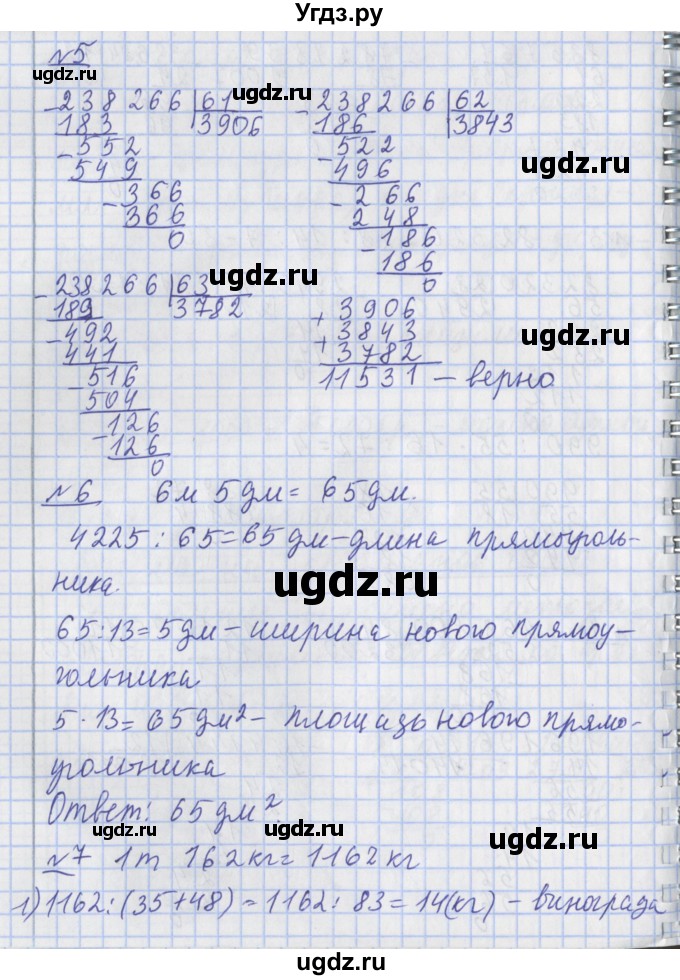 Угдз.ру
№5
ugdz.ru
ugdz.ru
- 238266 | 61
183 3906
- 552
549
- 366
366
0
- 238266 | 62
186 3843
- 522
496
- 266
248
- 186
186
0
ugdz.ru
ugdz.ru
- 238266 | 63
189 3782
- 492
441
- 516
504
- 126
126
0
+ 3906
+ 3843
3782
11531 - верно
ugdz.ru
№6 6м 5дм = 65дм.
4225 : 65 = 65дм - длина прямоуголь-
ника.
ugdz.ru
ugdz.ru
65 : 13 = 5дм - ширина нового прямоу-
гольника
5 · 13 = 65дм² - площадь нового прямо-
угольника
Ответ: 65дм².
ugdz.ru
ugdz.ru
№7 1т 162кг = 1162кг
1) 1162 : (35+48) = 1162 : 83 = 14(кг) - винограда